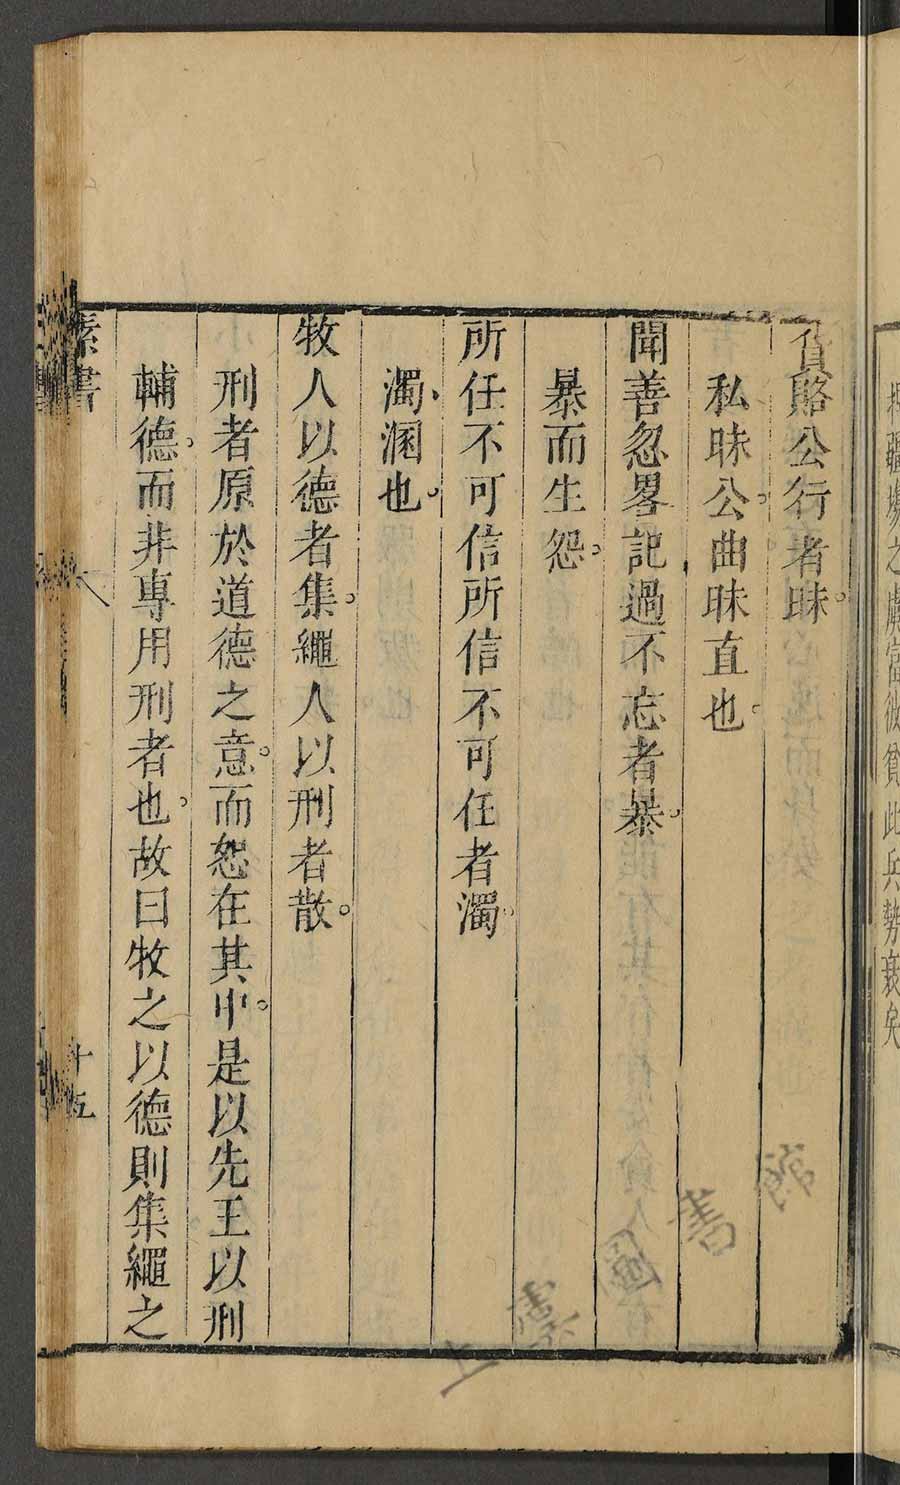 貨賂公行者昧
私昧公曲昧直也
聞善忽畧記過不忘者暴
暴而生怨
所任不可信所信不可任者濁
濁溷也
牧人以德者集繩人以刑者散
刑者原於道德之意而恕在其中是以先王以刑
輔德而非專用刑者也故曰牧之以德則集繩之
素書
十五